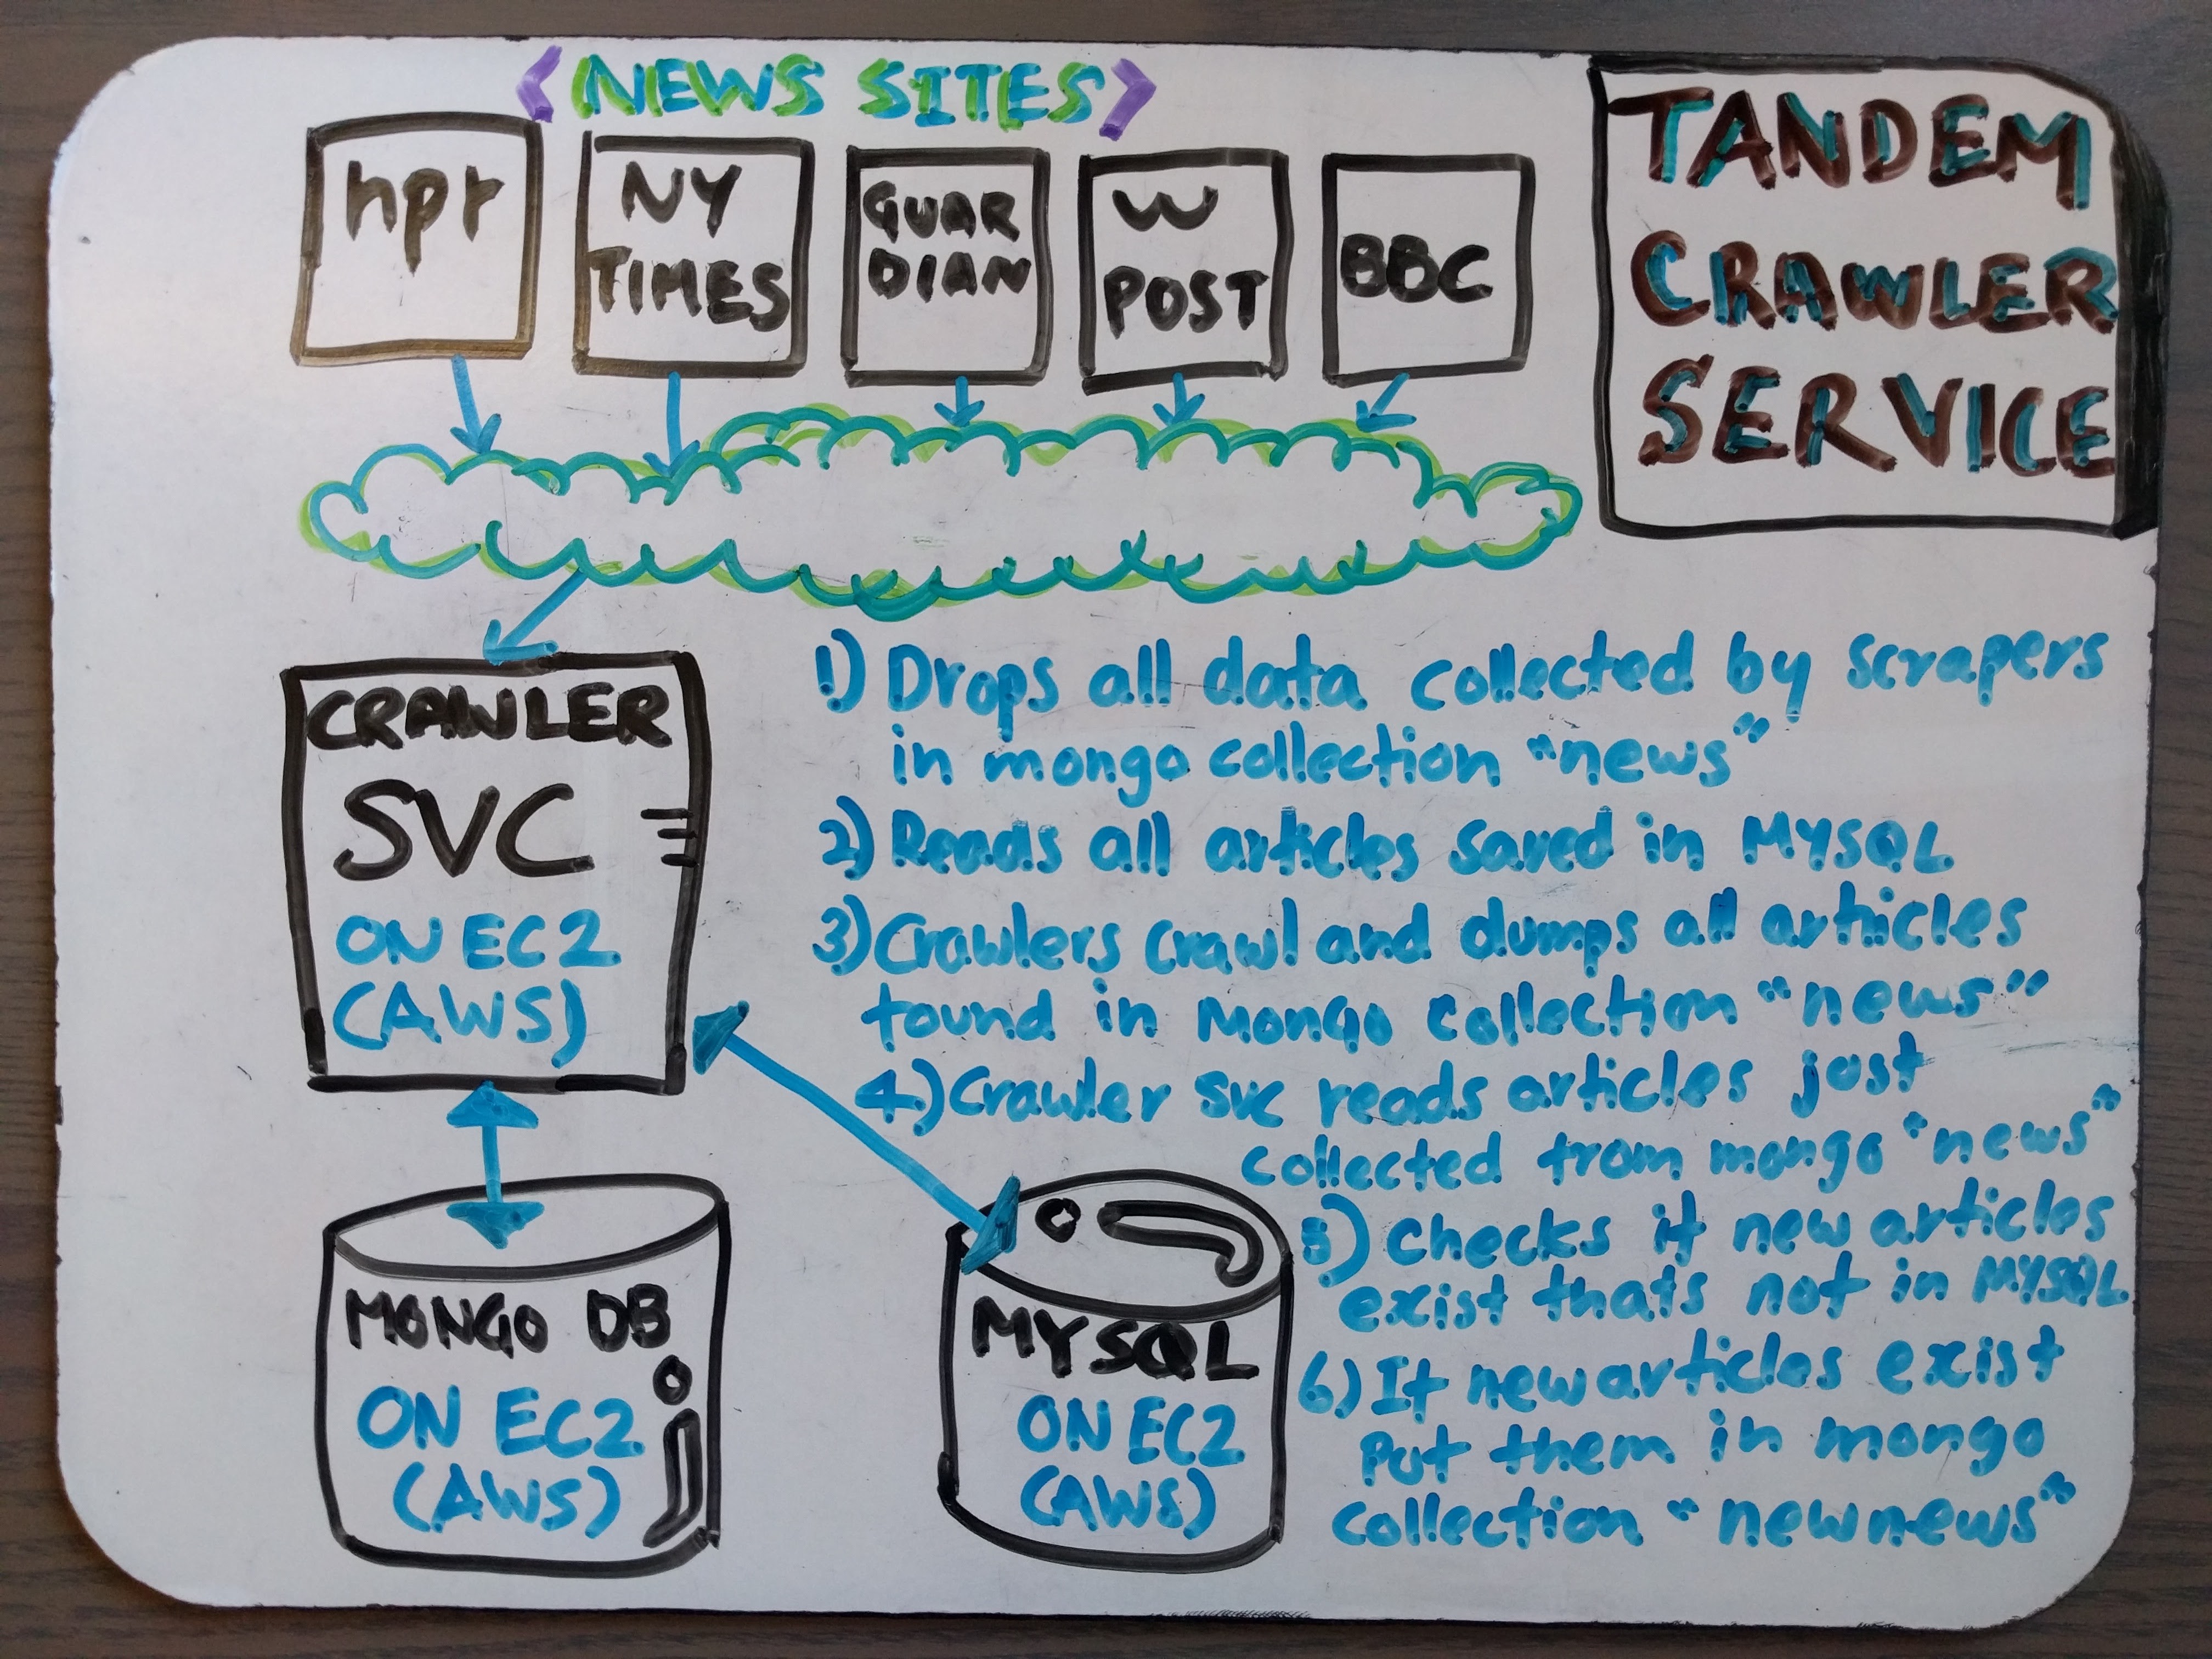 <NEWS SITES>
npr
NY
TIMES
GUAR
DIAN
W
POST
BBC
TANDEM
CRAWLER
SERVICE
CRAWLER
SVC
ON EC2
(AWS)
MONGO DB
ON EC2
(AWS)
MYSQL
ON EC2
(AWS)
1) Drops all data collected by scrapers
in mongo collection "news"
2) Reads all articles saved in MYSQL
3) Crawlers crawl and dumps all articles
found in Mongo collection "news"
4) Crawler svc reads articles just
collected from mongo "news"
5) Checks if new articles
exist thats not in MYSQL
6) If new articles exist
Put them in mongo
collection "newnews"